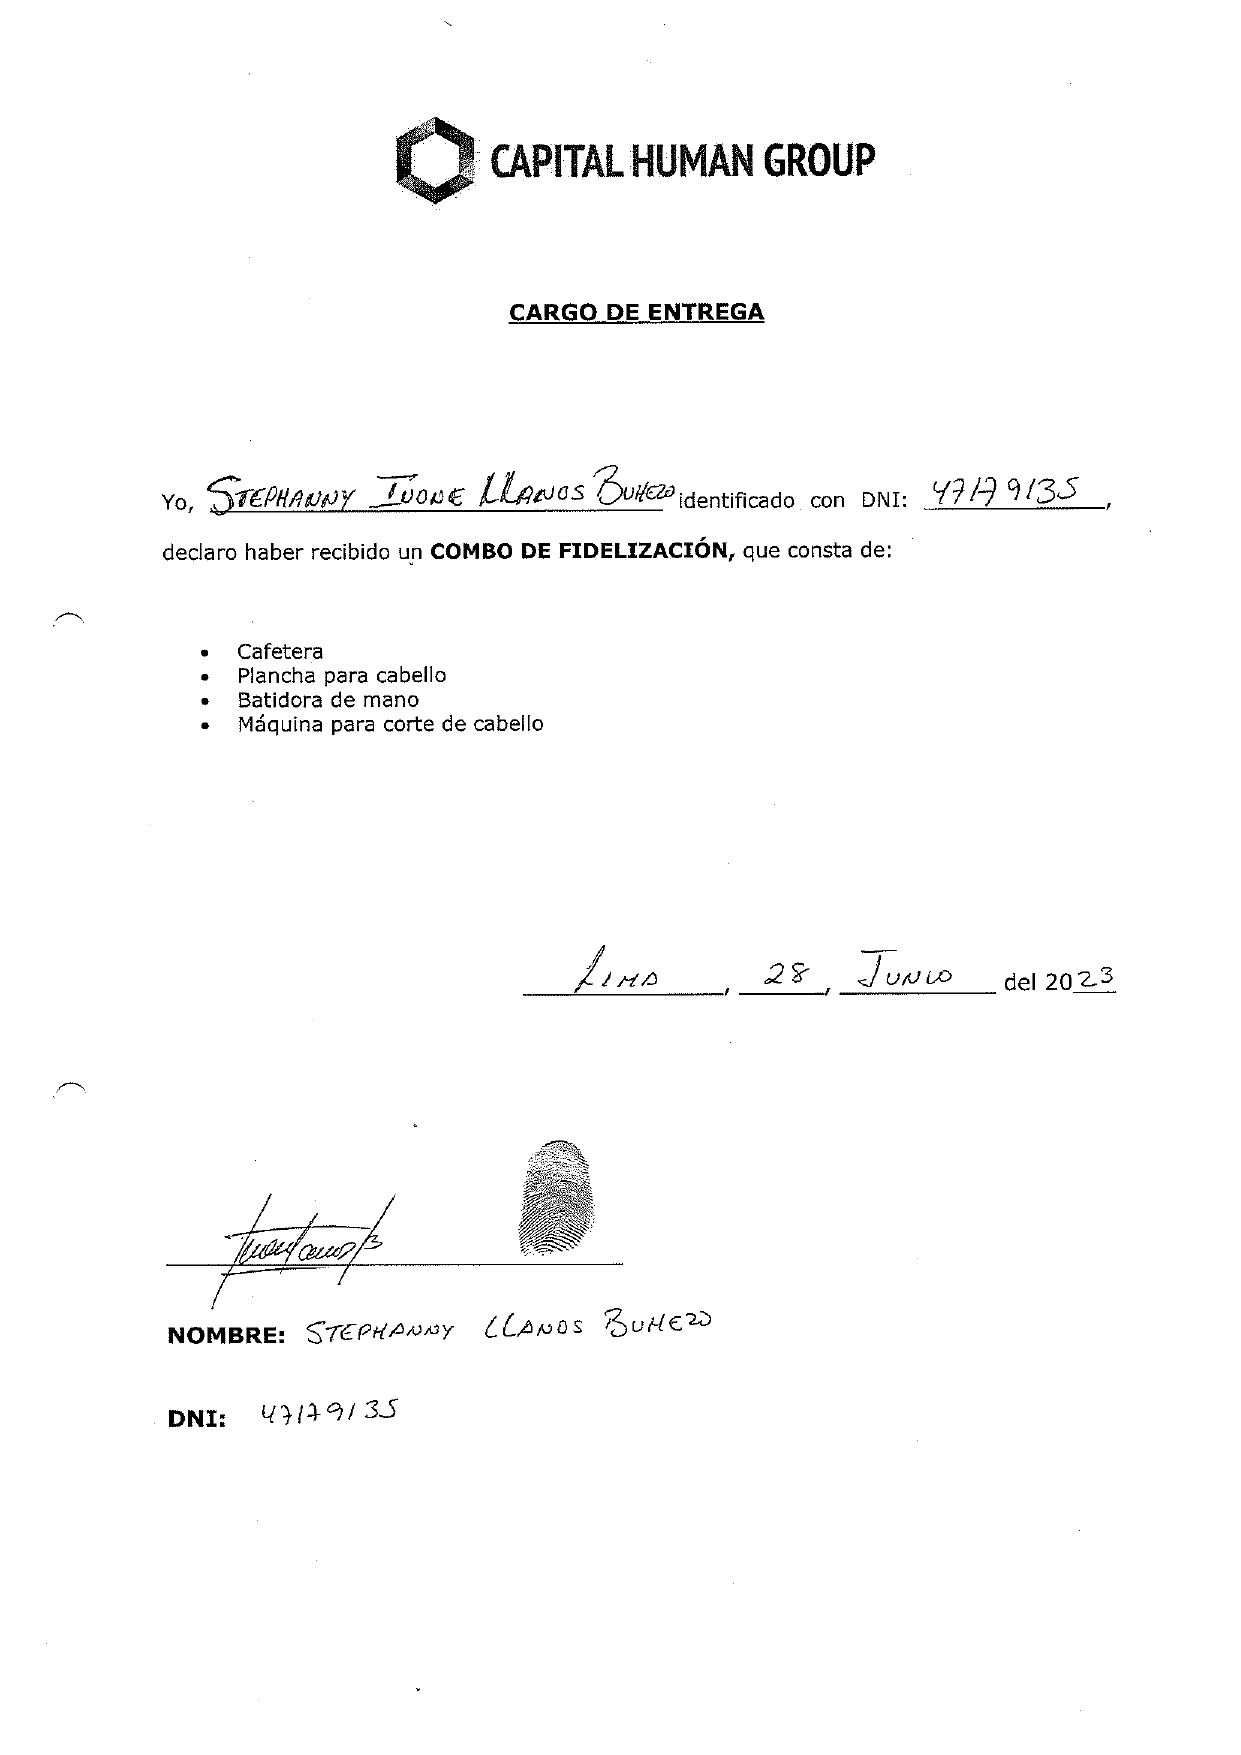 CAPITAL HUMAN GROUP
CARGO DE ENTREGA
Yo, STEPHANNY IVONE LLANOS BUHEZO identificado con DNI: 47179135,
declaro haber recibido un COMBO DE FIDELIZACIÓN, que consta de:
• Cafetera
• Plancha para cabello
• Batidora de mano
• Máquina para corte de cabello
LIMA, 28, JUNIO del 2023
NOMBRE: STEPHANNY LLANOS BUHEZO
DNI: 47179135